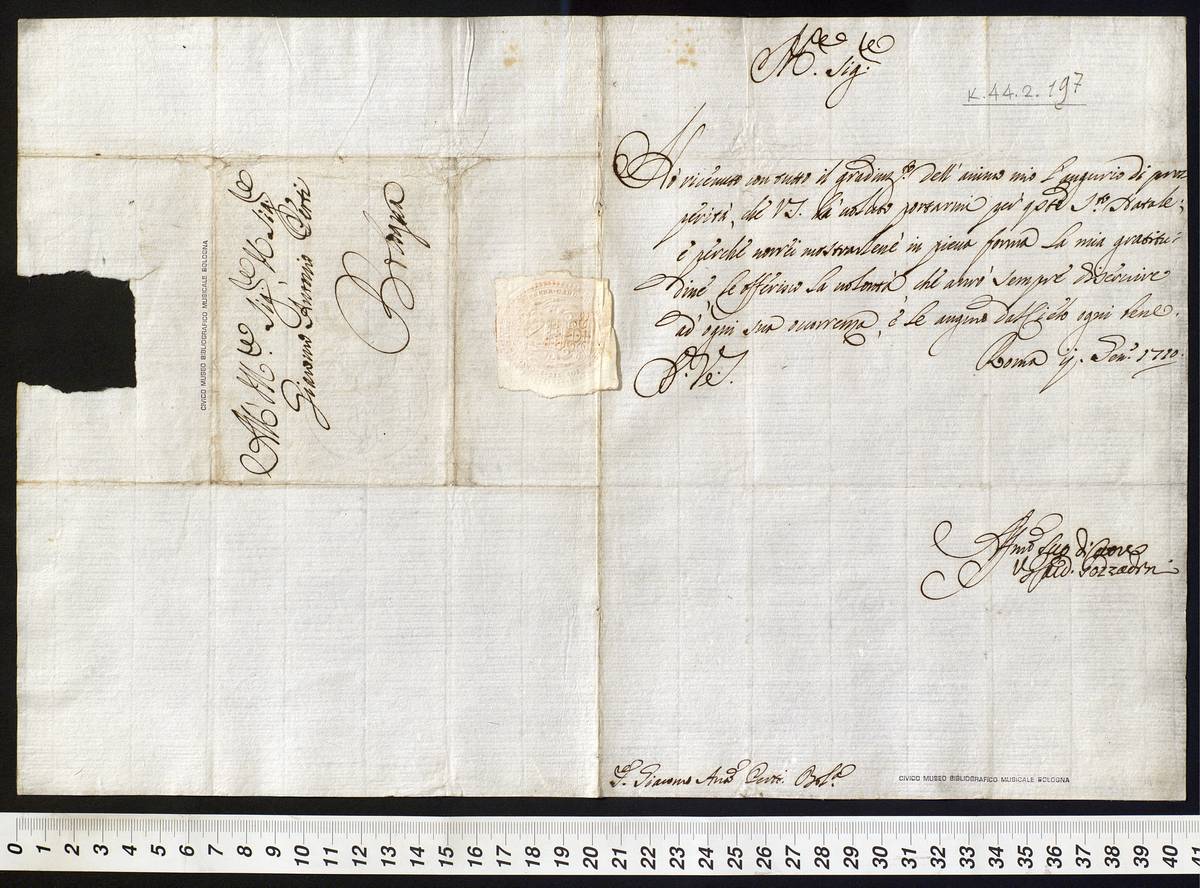 M.re Sig.re
K.44.2.197
Hò ricevuto con tutto il gradim.to dell'animo mio l'augurio di pros
perità, che V.S. hà voluto portarmi per q.sto S.to Natale;
è perche vorrei mostrarlene in piena forma la mia gratitu:
dine, le offerisco la volontà che avrò sempre di servire
ad' ogni sua occorrenza, è le auguro dal Cielo ogni bene.
Roma ij. Gen.o 1710.
Aff.mo suo di Cuore
Card. Gozzadini
S.r Giacomo Ant.o Perti. Bol.a
CIVICO MUSEO BIBLIOGRAFICO MUSICALE BOLOGNA
Al M.to Mag.co Sig.re
Giacomo Antonio Perti
Bologna
CIVICO MUSEO BIBLIOGRAFICO MUSICALE BOLOGNA
0 1 2 3 4 5 6 7 8 9 10 11 12 13 14 15 16 17 18 19 20 21 22 23 24 25 26 27 28 29 30 31 32 33 34 35 36 37 38 39 40 41